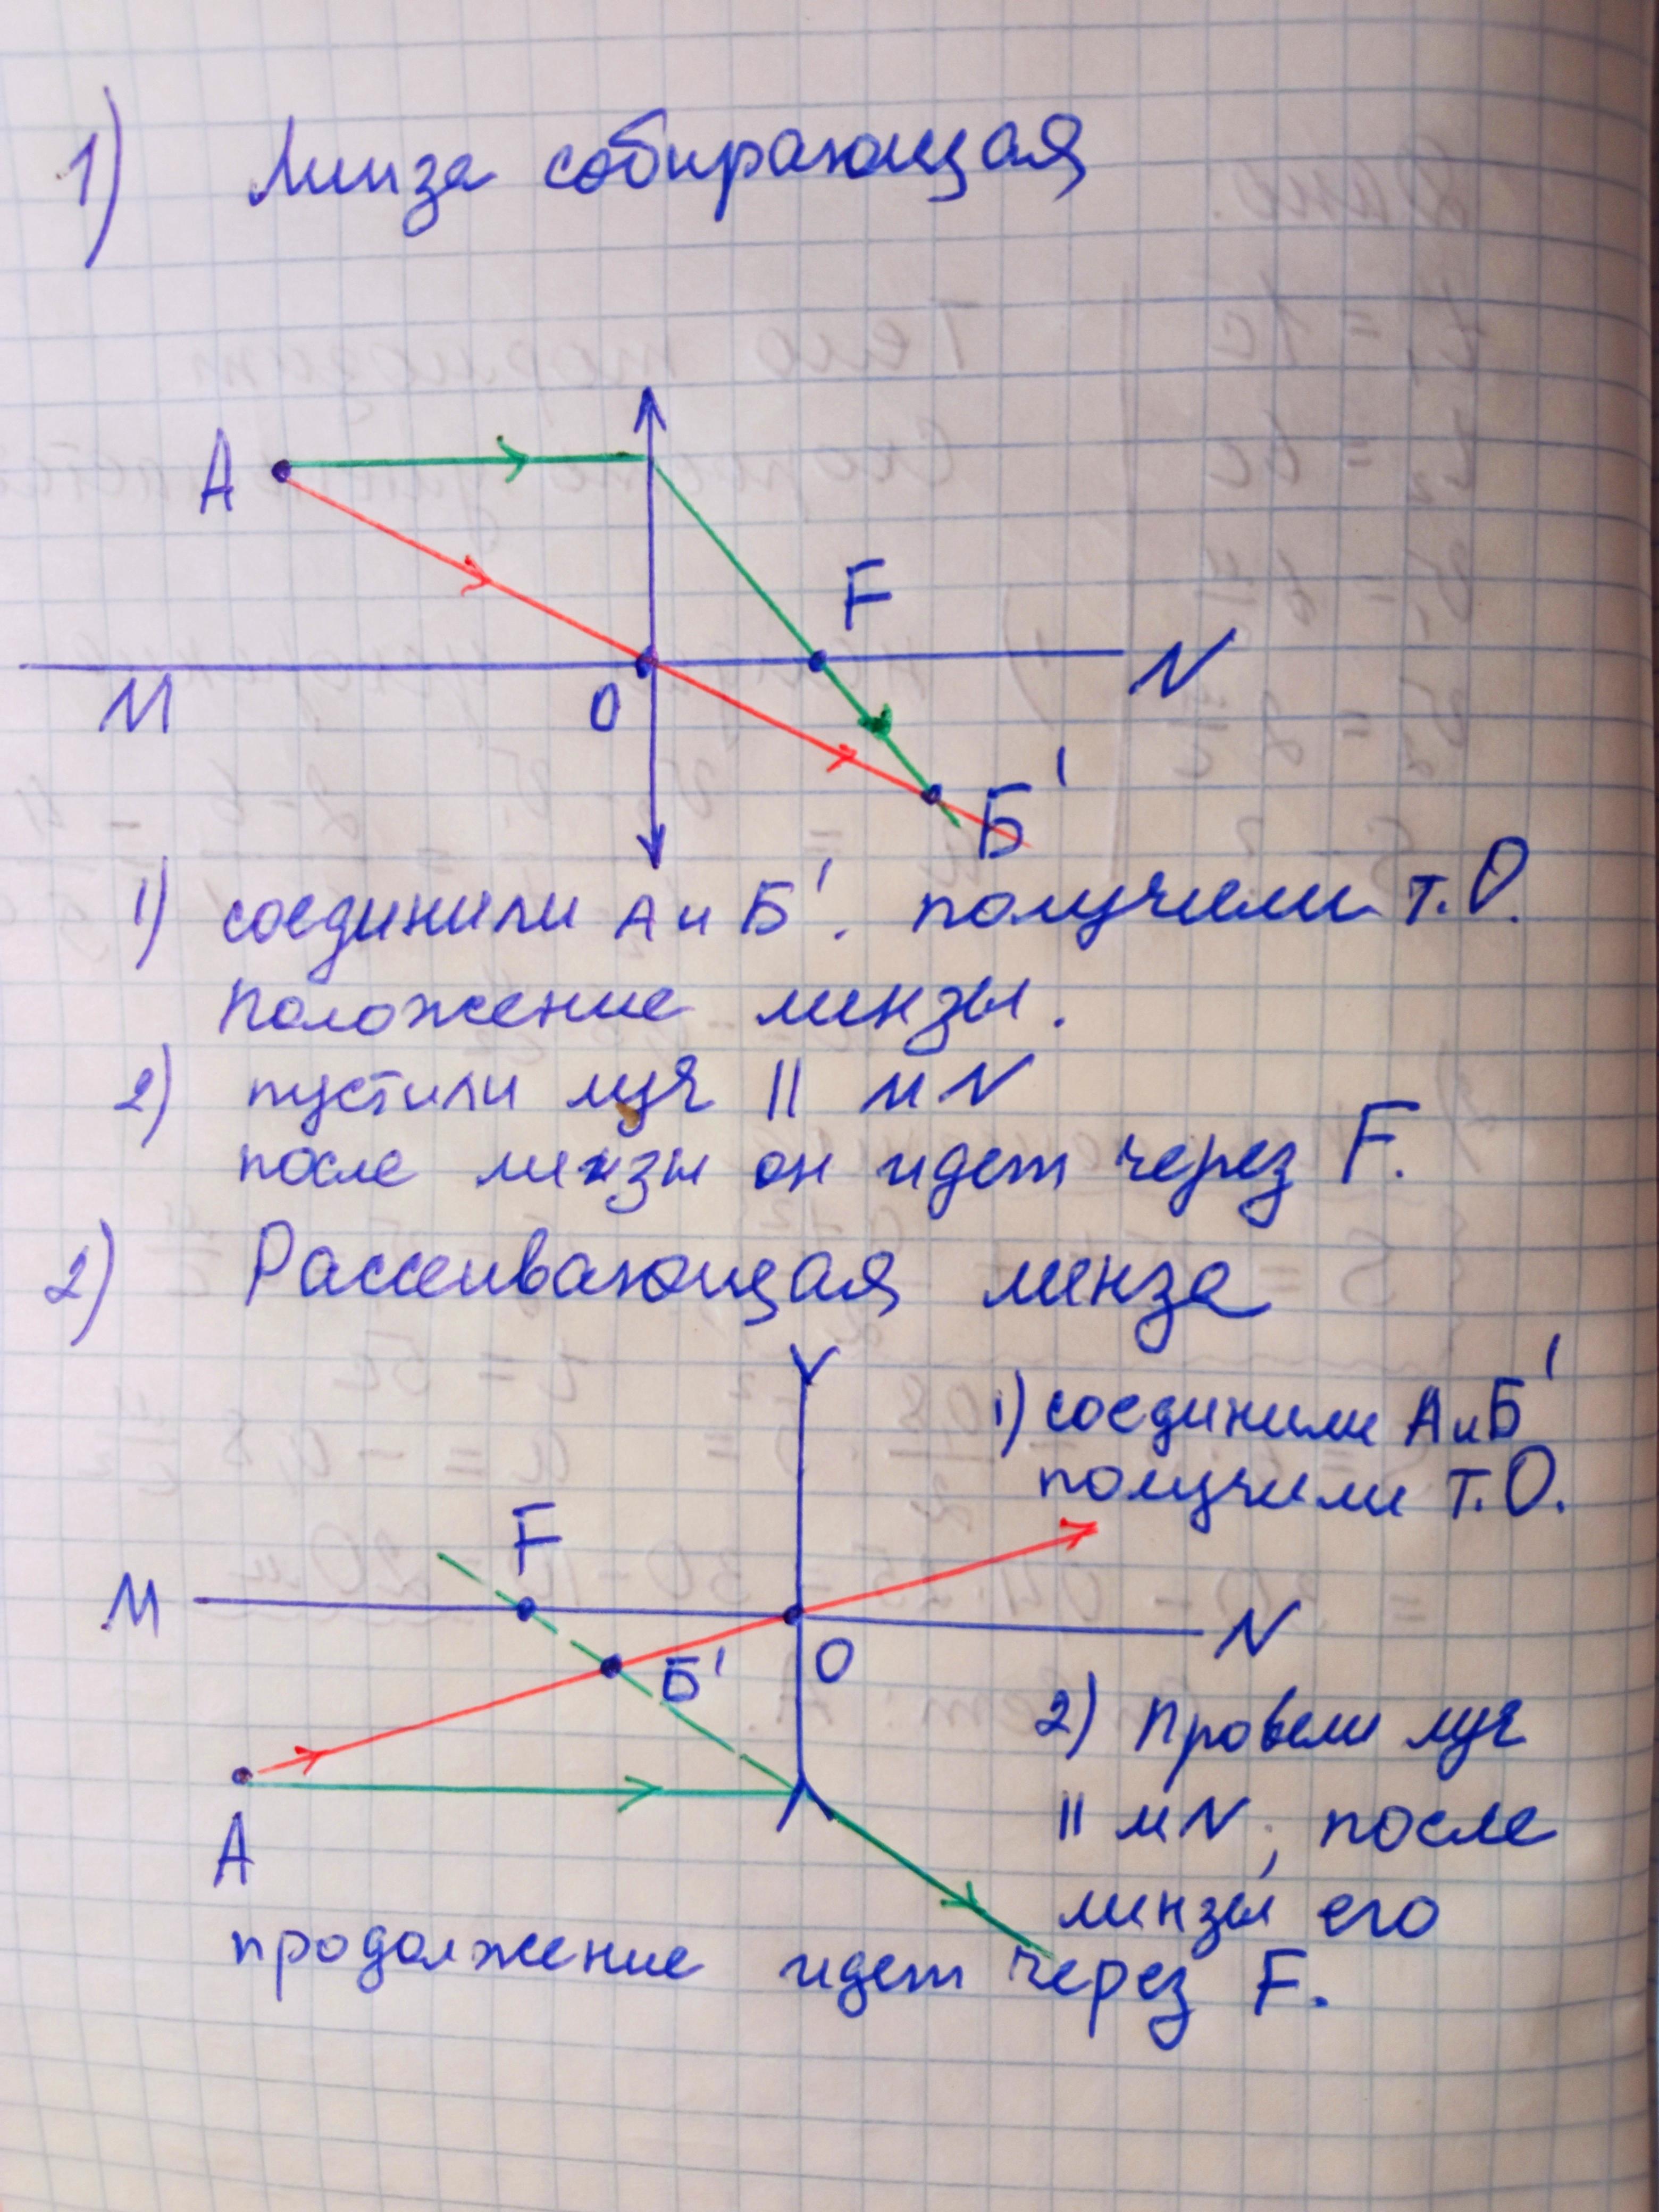 1) Линза собирающая
A
F
M
O
N
Б'
1) соединили А и Б'. получили т.О.
положение линзы.
2) пустили луч || MN
после линзы он идет через F.
2) Рассеивающая линза
1) соединили А и Б'
получили т.О.
F
M
N
Б'
O
2) Провели луч
|| MN, после
A
линзы его
продолжение идет через F.